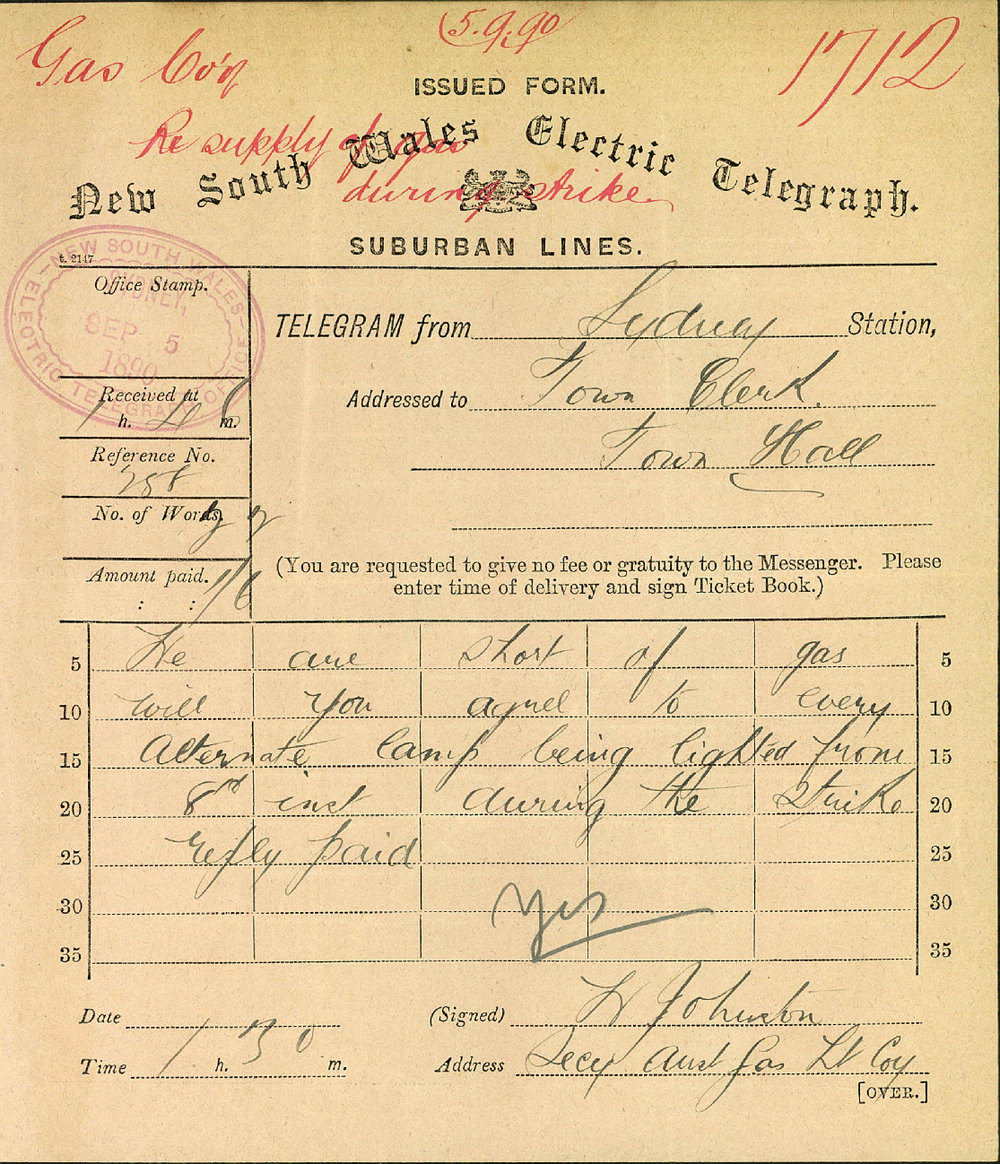 5.9.90
Gas Co'y
1712
ISSUED FORM.
Re supply of gas
New South Wales Electric Telegraph.
during strike
SUBURBAN LINES.
t. 2147
NEW SOUTH WALES
ELECTRIC TELEGRAPH OFFICE
SYDNEY,
SEP 5
1890
Office Stamp.
TELEGRAM from Sydney Station,
Received at
h. m.
Addressed to Town Clerk.
Town Hall
Reference No.
258
No. of Words
Amount paid.
: : 1/6
(You are requested to give no fee or gratuity to the Messenger. Please
enter time of delivery and sign Ticket Book.)
5 We are short of gas 5
10 will you agree to every 10
15 Alternate lamp being lighted from 15
20 8th inst during the Strike 20
25 reply paid 25
30 Yes 30
35 35
Date
(Signed) H Johnston
Time 1 h. 30 m.
Address Secy Aust Gas Lt Coy
[OVER.]